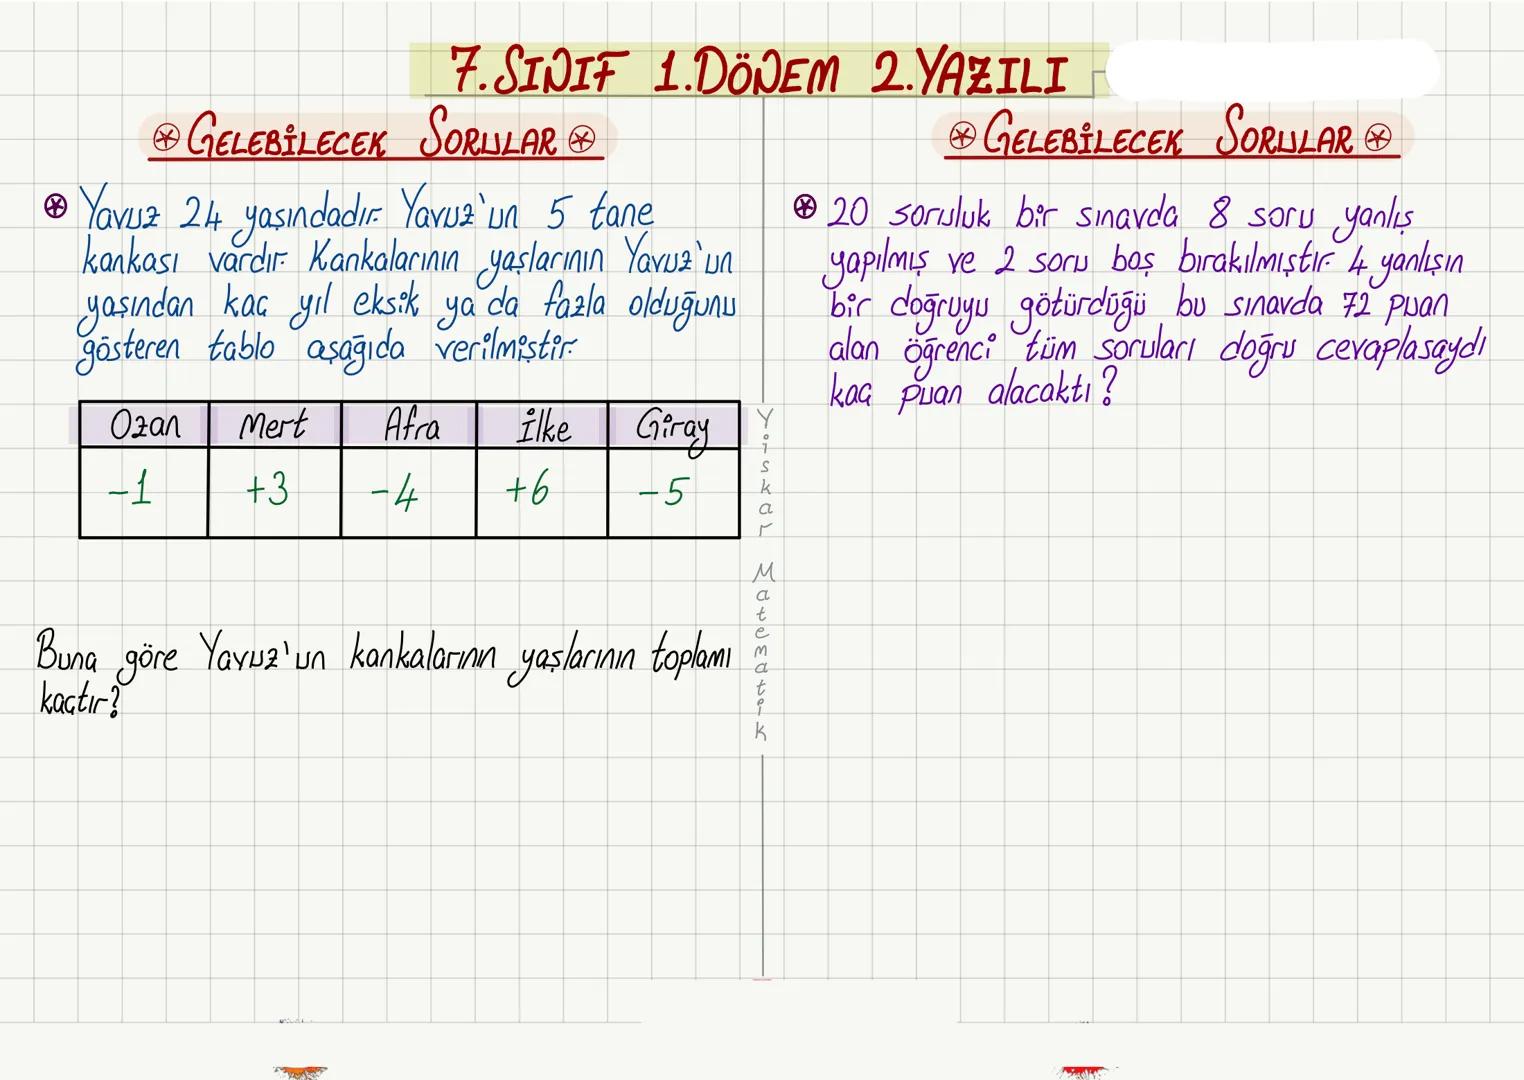 7.SINIF 1.DÖNEM 2.YAZILI
GELEBİLECEK SORULAR
Yavuz 24 yaşındadır. Yavuz'un 5 tane
kankası vardır. Kankalarının yaşlarının Yavuz'un
yaşından kaç yıl eksik ya da fazla olduğunu
gösteren tablo aşağıda verilmiştir.
Ozan Mert Afra İlke Giray
-1 +3 -4 +6 -5
Buna göre Yavuz'un kankalarının yaşlarının toplamı
kaçtır?
Yiskar Matematik
GELEBİLECEK SORULAR
20 soruluk bir sınavda 8 soru yanlış
yapılmış ve 2 soru boş bırakılmıştır. 4 yanlışın
bir doğruyu götürdüğü bu sınavda 72 puan
alan öğrenci tüm soruları doğru cevaplasaydı
kaç puan alacaktı?